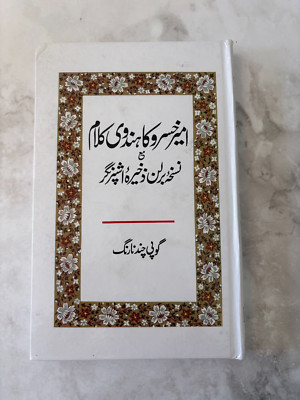 امیر خسرو کا ہندوی کلام
مع
نسخۂ برلن ذخیرۂ اشپرنگر
گوپی چند نارنگ